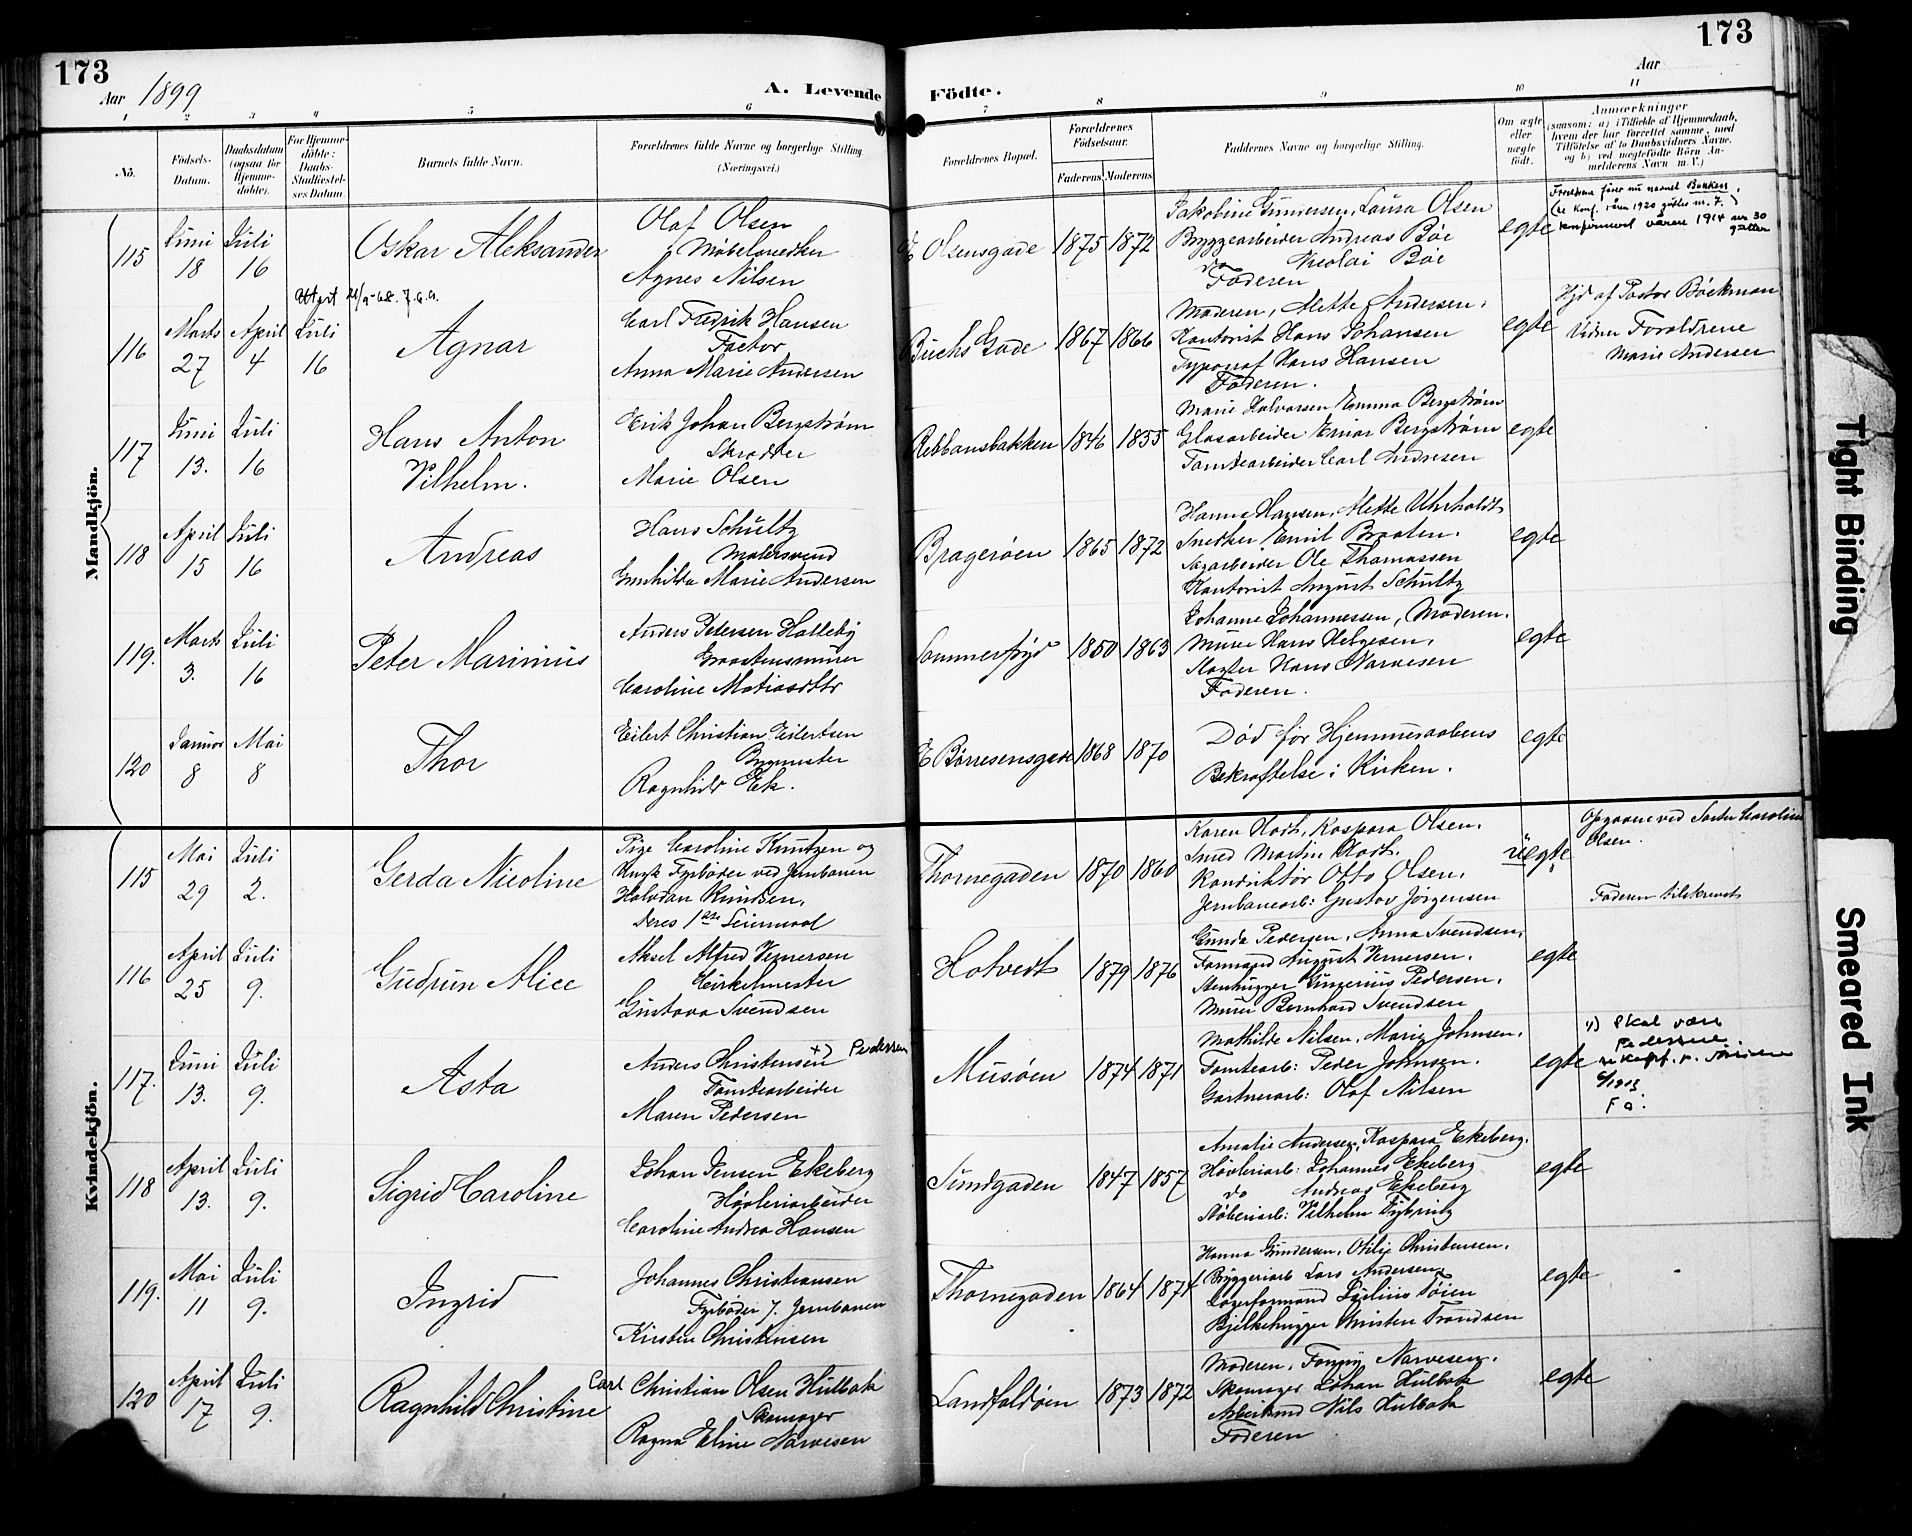 173
173
Aar 1899
A. Levende Födte.
Aar
1 2 3 4 5 6 7 8 9 10 11
No.
Födsels-Datum.
Daabsdatum (ogsaa för Hjemmedöbte).
For Hjemmedöbte: Daabs-Stadfæstelses Datum
Barnets fulde Navn.
Forældrenes fulde Navne og borgerlige Stilling (Næringsvei.)
Forældrenes Bopæl.
Forældrenes Födselsaar.
Faderens. Moderens.
Faddernes Navne og borgerlige Stilling.
Om ægte eller uægte födt.
Anmærkninger
(saasom: a) i Tilfælde af Hjemmedaab,
hvem der har forrettet samme, med
Tilföielse af to Daabsvidners Navne,
og b) ved uægtefödte Börn Anmelderens Navn m. V.)
Mandkjön.
115
Juni 18
Juli 16
Oskar Aleksander
Olaf Olsen
Möbelsnedker
Agnes Nilsen
E Olsensgade
1875 1872
Jakobine Gundersen, Laura Olsen
Bryggearbeider Andreas Böe
do Nicolai Böe
Faderen
egte
Foreldrene fører nu navnet Bakken,
(se Konf. våren 1920 gutter nr. 7.)
konfirmert våren 1914 nr 30
gutter
116
Marts 27
April 4
Juli 16
Agnar
Carl Fredrik Hansen
Factor
Anna Marie Andersen
Buchs Gade
1867 1866
Moderen, Mette Andersen,
Kontorist Hans Johansen
Typograf Hans Hansen
Faderen.
egte
Hjd af Pastor Böckman
Vidner Foreldrene
Marie Andersen
117
Juni 13.
Juli 16
Hans Anton
Vilhelm.
Erik Johan Bergström
Skrædder
Marie Olsen
Rebbansbakken
1846 1855
Marie Halvorsen Emma Bergström
Glasarbeider Einar Bergström
Tomtearbeider Carl Andresen
egte
118
April 15
Juli 16
Andreas
Hans Schultz
Malersvend
Gunhilda Marie Andersen
Bragerøen
1865 1872
Hanna Hansen, Mette Uhrholdt
Snedker Emil Braaten.
Sagarbeider Ole Thomassen
Kontorist August Schultz
egte
119.
Marts 3.
Juli 16
Peter Marinius
Anders Petersen Halleby
Graastensmurer
Caroline Matiasdtr
Sommerfryd
1850 1863
Johanne Johannessen, Moderen.
Murer Hans Helgesen,
Slagter Hans Narvesen
Faderen.
egte
120
Januar 8
Mai 8
Thor
Eilert Christian Eilertsen
Bygmester
Ragnhild Ek.
E Börresensgade
1868 1870
Död før Hjemmedaabens
Bekræftelse i Kirken.
egte
Kvindekjön.
115
Mai 29
Juli 2.
Gerda Nicoline
Pige Caroline Knutzen og
Ungk Fyrböder ved Jernbanen
Halvdan Knudsen,
deres 1ste Leiermaal
Thornegaden
1870 1860
Karen Hort, Kaspara Olsen,
Smed Martin Hort.
Konduktör Otto Olsen,
Jernbanearb: Gustav Jörgensen
uegte
Opgaave ved Søster Caroline
Olsen.
Faderen tilskrevet
116
April 25
Juli 9.
Gudrun Alice
Aksel Alfred Vernersen
Cirkelmester
Gustava Svendsen
Hotvedt
1879 1876
Gunda Pedersen, Anna Svendsen,
Formand August Vernersen.
Stenhugger Gunerius Pedersen.
Murer Bernhard Svendsen
egte
117.
Juni 13.
Juli 9.
Asta
Anders Christensen +) Pedersen
Tomtearbeider
Maren Pedersen
Musöen
1874 1871
Mathilde Nilsen, Marie Johnsen.
Tomtearb: Peder Johnsen.
Gartnerarb: Olaf Nilsen
egte
1) Skal være
Pedersen
118
April 13.
Juli 9.
Sigrid Caroline
Johan Jensen Ekeberg
Hövleriarbeider
Caroline Andrea Hansen
Sundgaden
1847 1857
Amalie Andersen, Kaspara Ekeberg.
Hövleriarb: Johannes Ekeberg
do Andreas Ekeberg
Stöberiarb: Vilhelm Fyhring
egte
119.
Mai 11
Juli 9.
Ingrid
Johannes Christiansen
Fyrböder v. Jernbanen
Kirsten Christensen
Thornegaden
1864 1874
Hanna Gundersen, Otilie Christensen.
Bryggeriarb Lars Andersen,
Lagerformand Edelius Töien
Bjelkehugger Christen Trondsen
egte
120
April 17
Juli 9.
Ragnhild Christine
Carl Christian Olsen Hulbak
Skomager
Ragna Eline Narvesen
Landfaldöen
1873 1872
Moderen, Fanny Narvesen.
Skomager Johan Hulbak
Arbeidsmd Nils Hulbak
Faderen
egte
Tight Binding
Smeared Ink